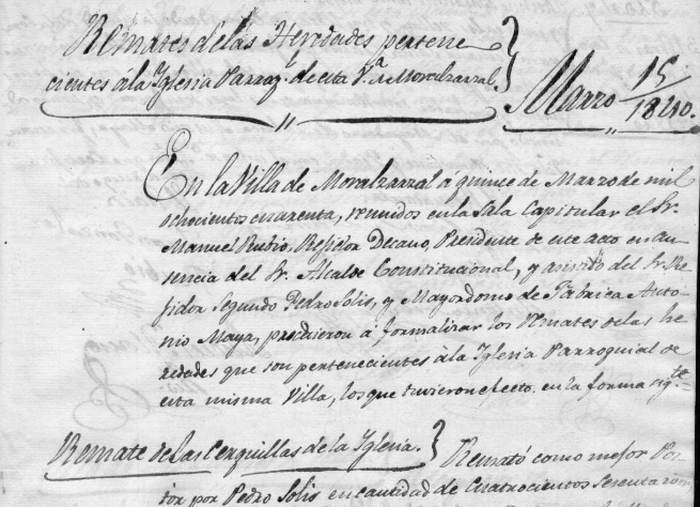 Remates de las Heredades pertene-
cientes á la Iglesia Parroq.l de esta V.a de Moralzarzal.
Marzo 15/1840.
En la Villa de Moralzarzal á quince de Marzo de mil
ochocientos cuarenta, reunidos en la Sala Capitular el Sr.
Manuel Rubio, Regidor Decano, Presidente de este acto en au-
sencia del Sr. Alcalde Constitucional, y asistido del Sr. Re-
gidor segundo Pedro Solis, y Mayordomo de Fábrica Anto-
nio Maya, procedieron á formalizar los Remates de las he-
redades que son pertenecientes á la Iglesia Parroquial de
esta misma Villa, los que tuvieron efecto en la forma sig.te
Remate de las Cerquillas de la Iglesia.} Remató como mejor Pos-
tor por Pedro Solis en cantidad de Cuatrocientos sesenta